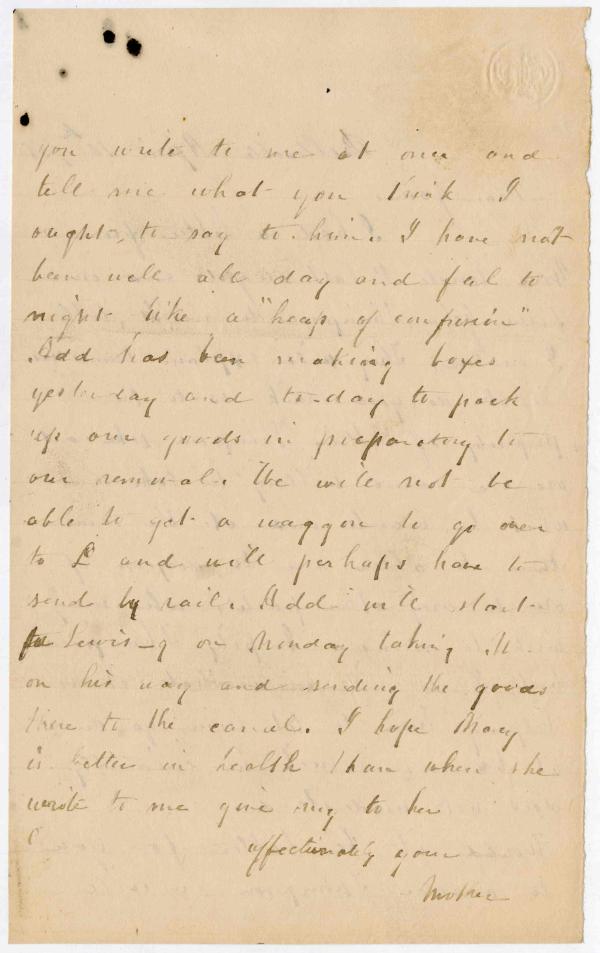 you write to me at once and
tell me what you think I
ought, to say to him. I have not
been well all day and feel to
night like a "heap of confusion"
Add has been making boxes
yesterday and to-day to pack
up our goods in preparatory to
our removal. We will not be
able to get a waggon to go over
to L and will perhaps have to
send by rail. Add will start
for Lewis-g on Monday taking H
on his way and sending the goods
there to the canal. I hope Mary
is better in health than when she
wrote to me give my to her
affectionately your
Mother